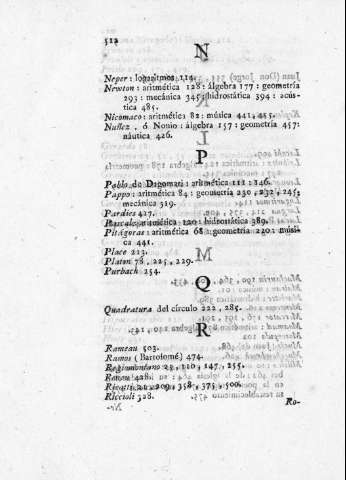 512
N
Neper: logaritmos 114.
Newton: aritmética 128: álgebra 177: geometría
293: mecánica 345: hidrostática 394: acús-
tica 485.
Nicomaco: aritmética 82: música 441, 485.
Nuñez, ó Nonio: álgebra 157: geometría 457:
náutica 426.
P
Pablo de Dagomari: aritmética 111: 146.
Pappo: aritmética 84: geometría 230, 232, 245,
mecánica 319.
Pardies 427.
aritmética 120: hidrostática 389.
Pitágoras: aritmética 68: geometría 220: músi-
ca 441.
Place 213.
Platon 78, 225, 229.
Purbach 254.
Q
Quadratura del círculo 222, 285.
R
Rameau 503.
Ramos (Bartolomé) 474.
Regiomontano 110, 147, 255.
428.
Ricati 209, 358, 375, 506.
Riccioli 328.
Ro-